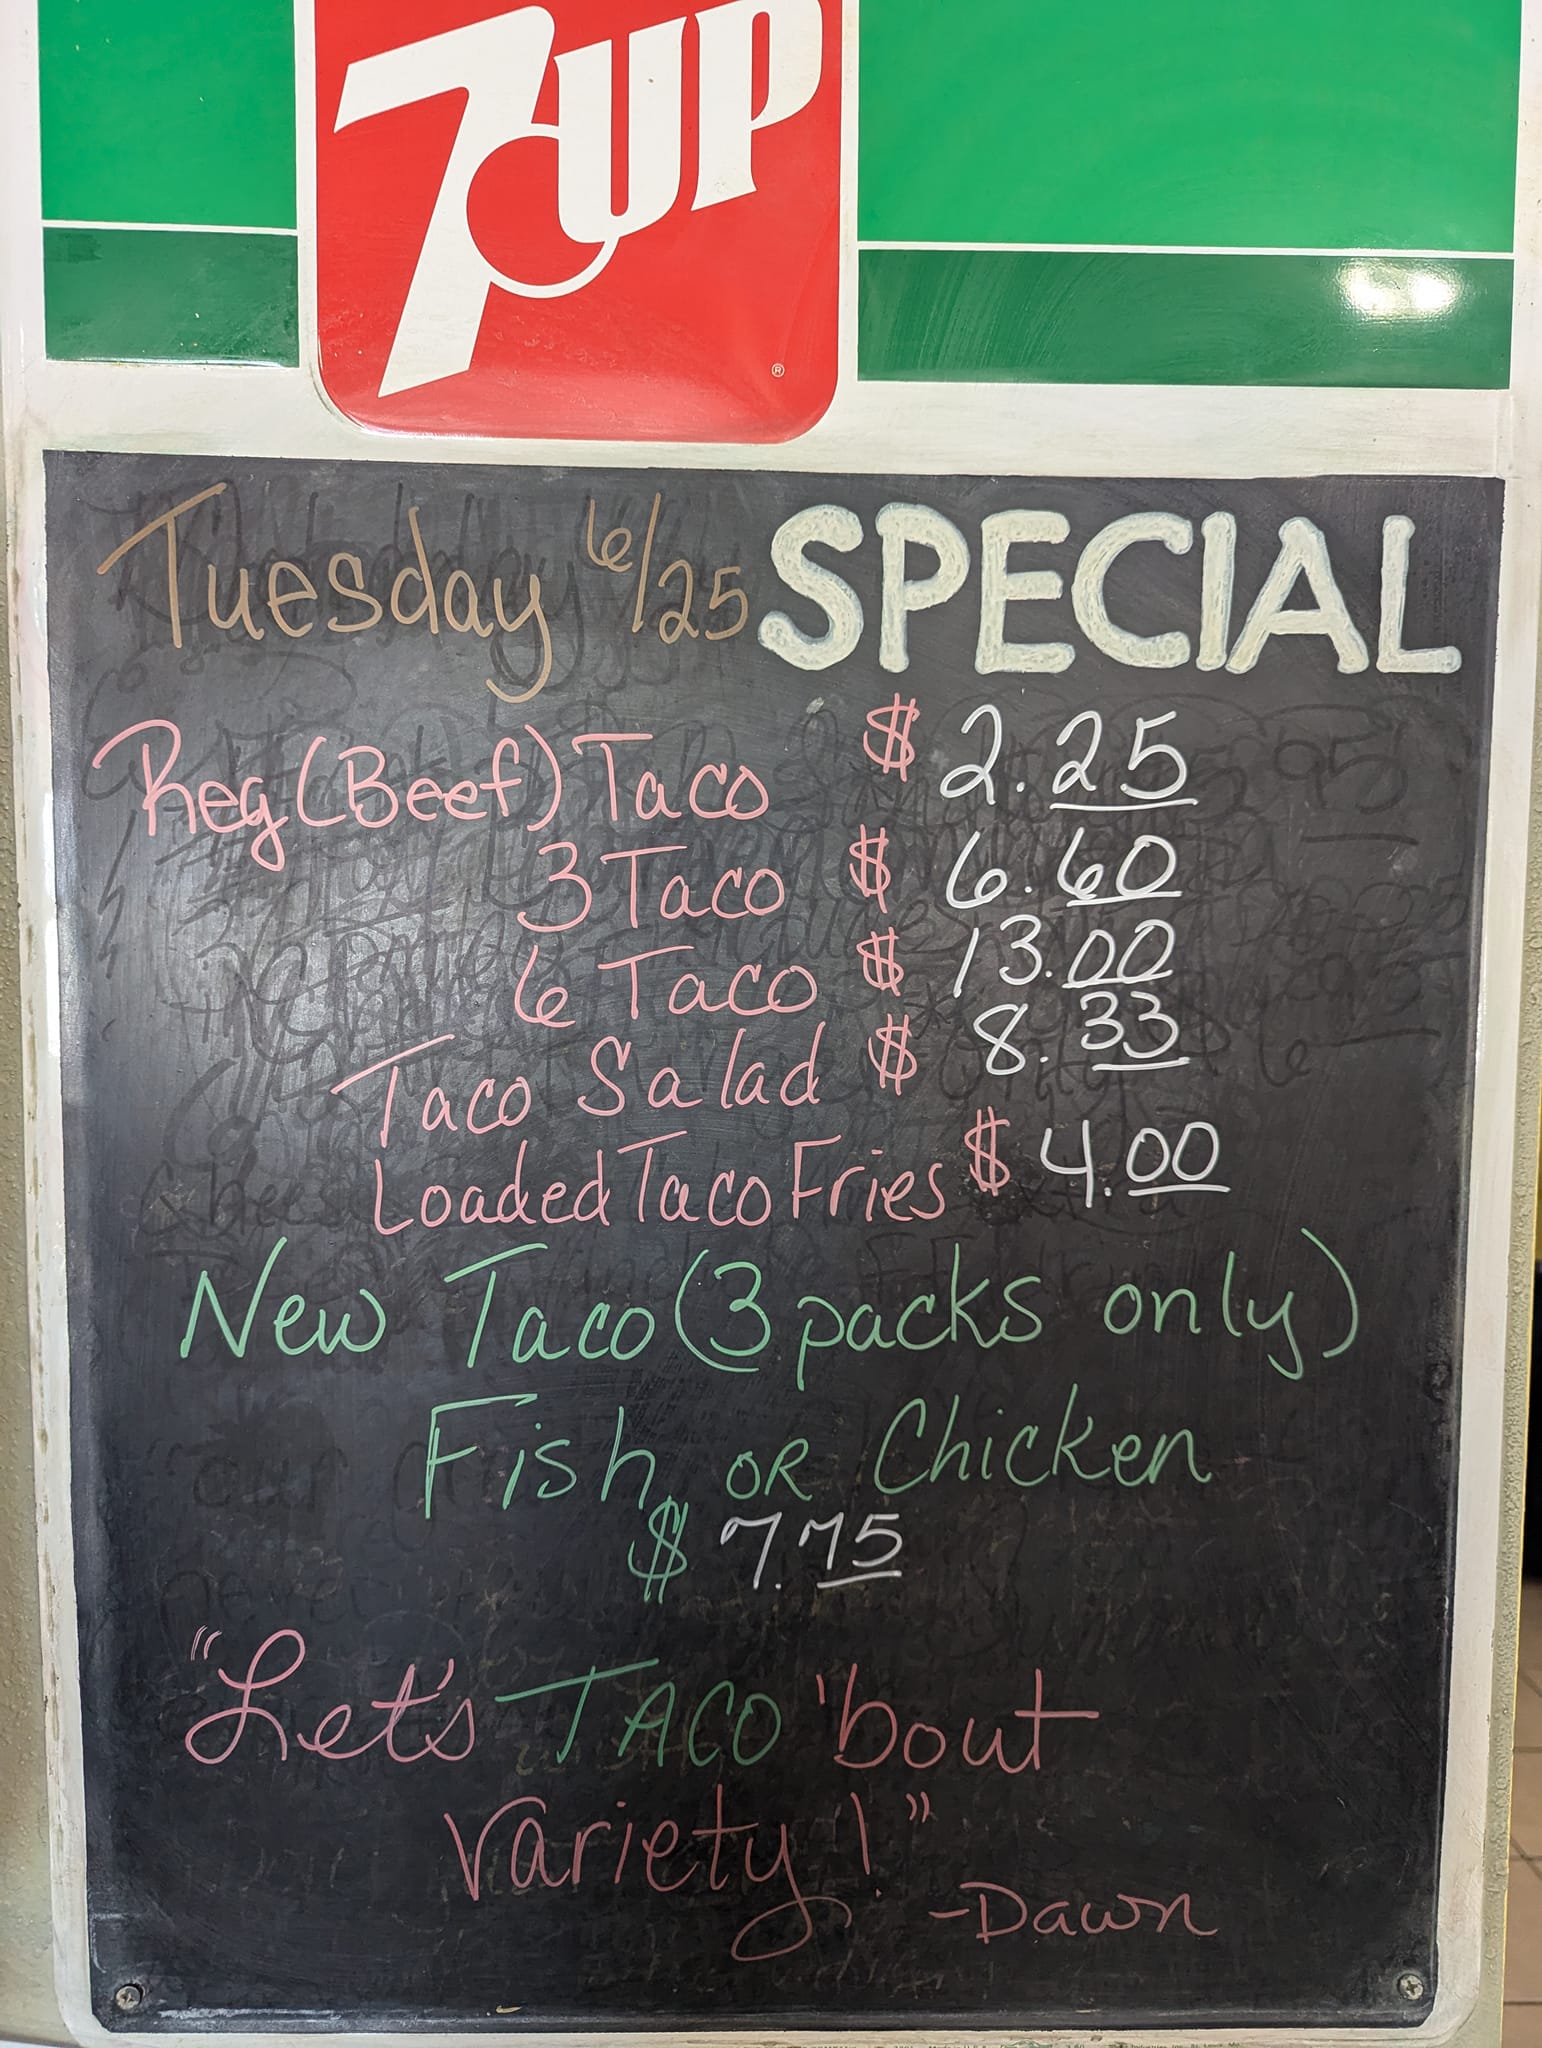 7UP
®
Tuesday 6/25 SPECIAL
Reg (Beef) Taco $ 2.25
3 Taco $ 6.60
6 Taco $ 13.00
Taco Salad $ 8.33
Loaded Taco Fries $ 4.00
New Taco (3 packs only)
Fish or Chicken
$ 7.75
"Let's TACO 'bout
Variety!"
-Dawn